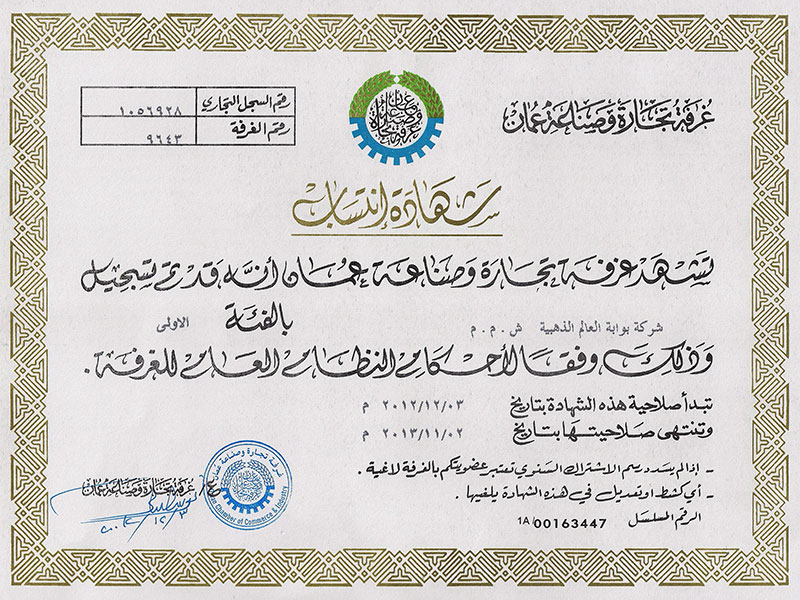 غرفة تجارة وصناعة عمان
رقم السجل التجاري ١٠٥٦٩٢٨
رقم الغرفة ٩٦٤٣
شهادة إنتساب
تشهد غرفة تجارة وصناعة عمان أنه قد تم تسجيل
شركة بوابة العالم الذهبية ش . م . م بالفئة الاولى
وذلك وفقا لأحكام النظام العام للغرفة .
تبدأ صلاحية هذه الشهادة بتاريخ ٢٠١٢/١٢/٠٣ م
وتنتهى صلاحيتها بتاريخ ٢٠١٣/١١/٠٢ م
- إذا لم يسدد رسم الاشتراك السنوي تعتبر عضويتكم بالغرفة لاغية .
- أي كشط او تعديل في هذه الشهادة يلغيها .
الرقم المسلسل 1A/00163447
ع/ غرفة تجارة وصناعة عمان
غرفة تجارة وصناعة عمان
Oman Chamber of Commerce & Industry